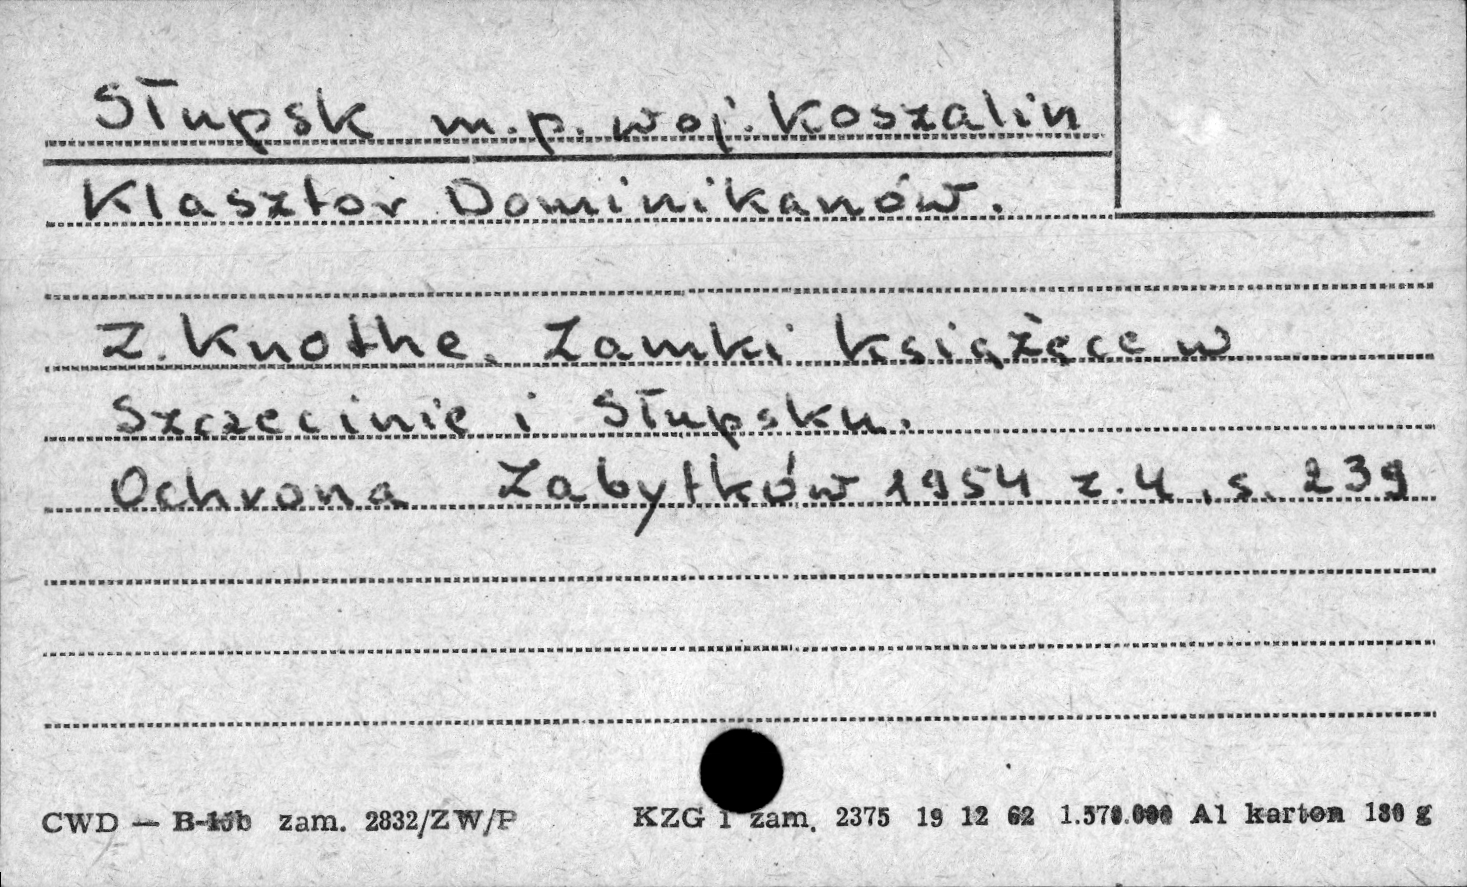 Słupsk m.p. woj. Koszalin
Klasztor Dominikanów.
Z. Knothe. Zamki książęce w
Szczecinie i Słupsku.
Ochrona Zabytków 1954 z. 4, s. 239
CWD — zam. 2832/ZW/P
KZG 1 zam. 2375 19 12 62 1.570.000 A1 karton 180 g